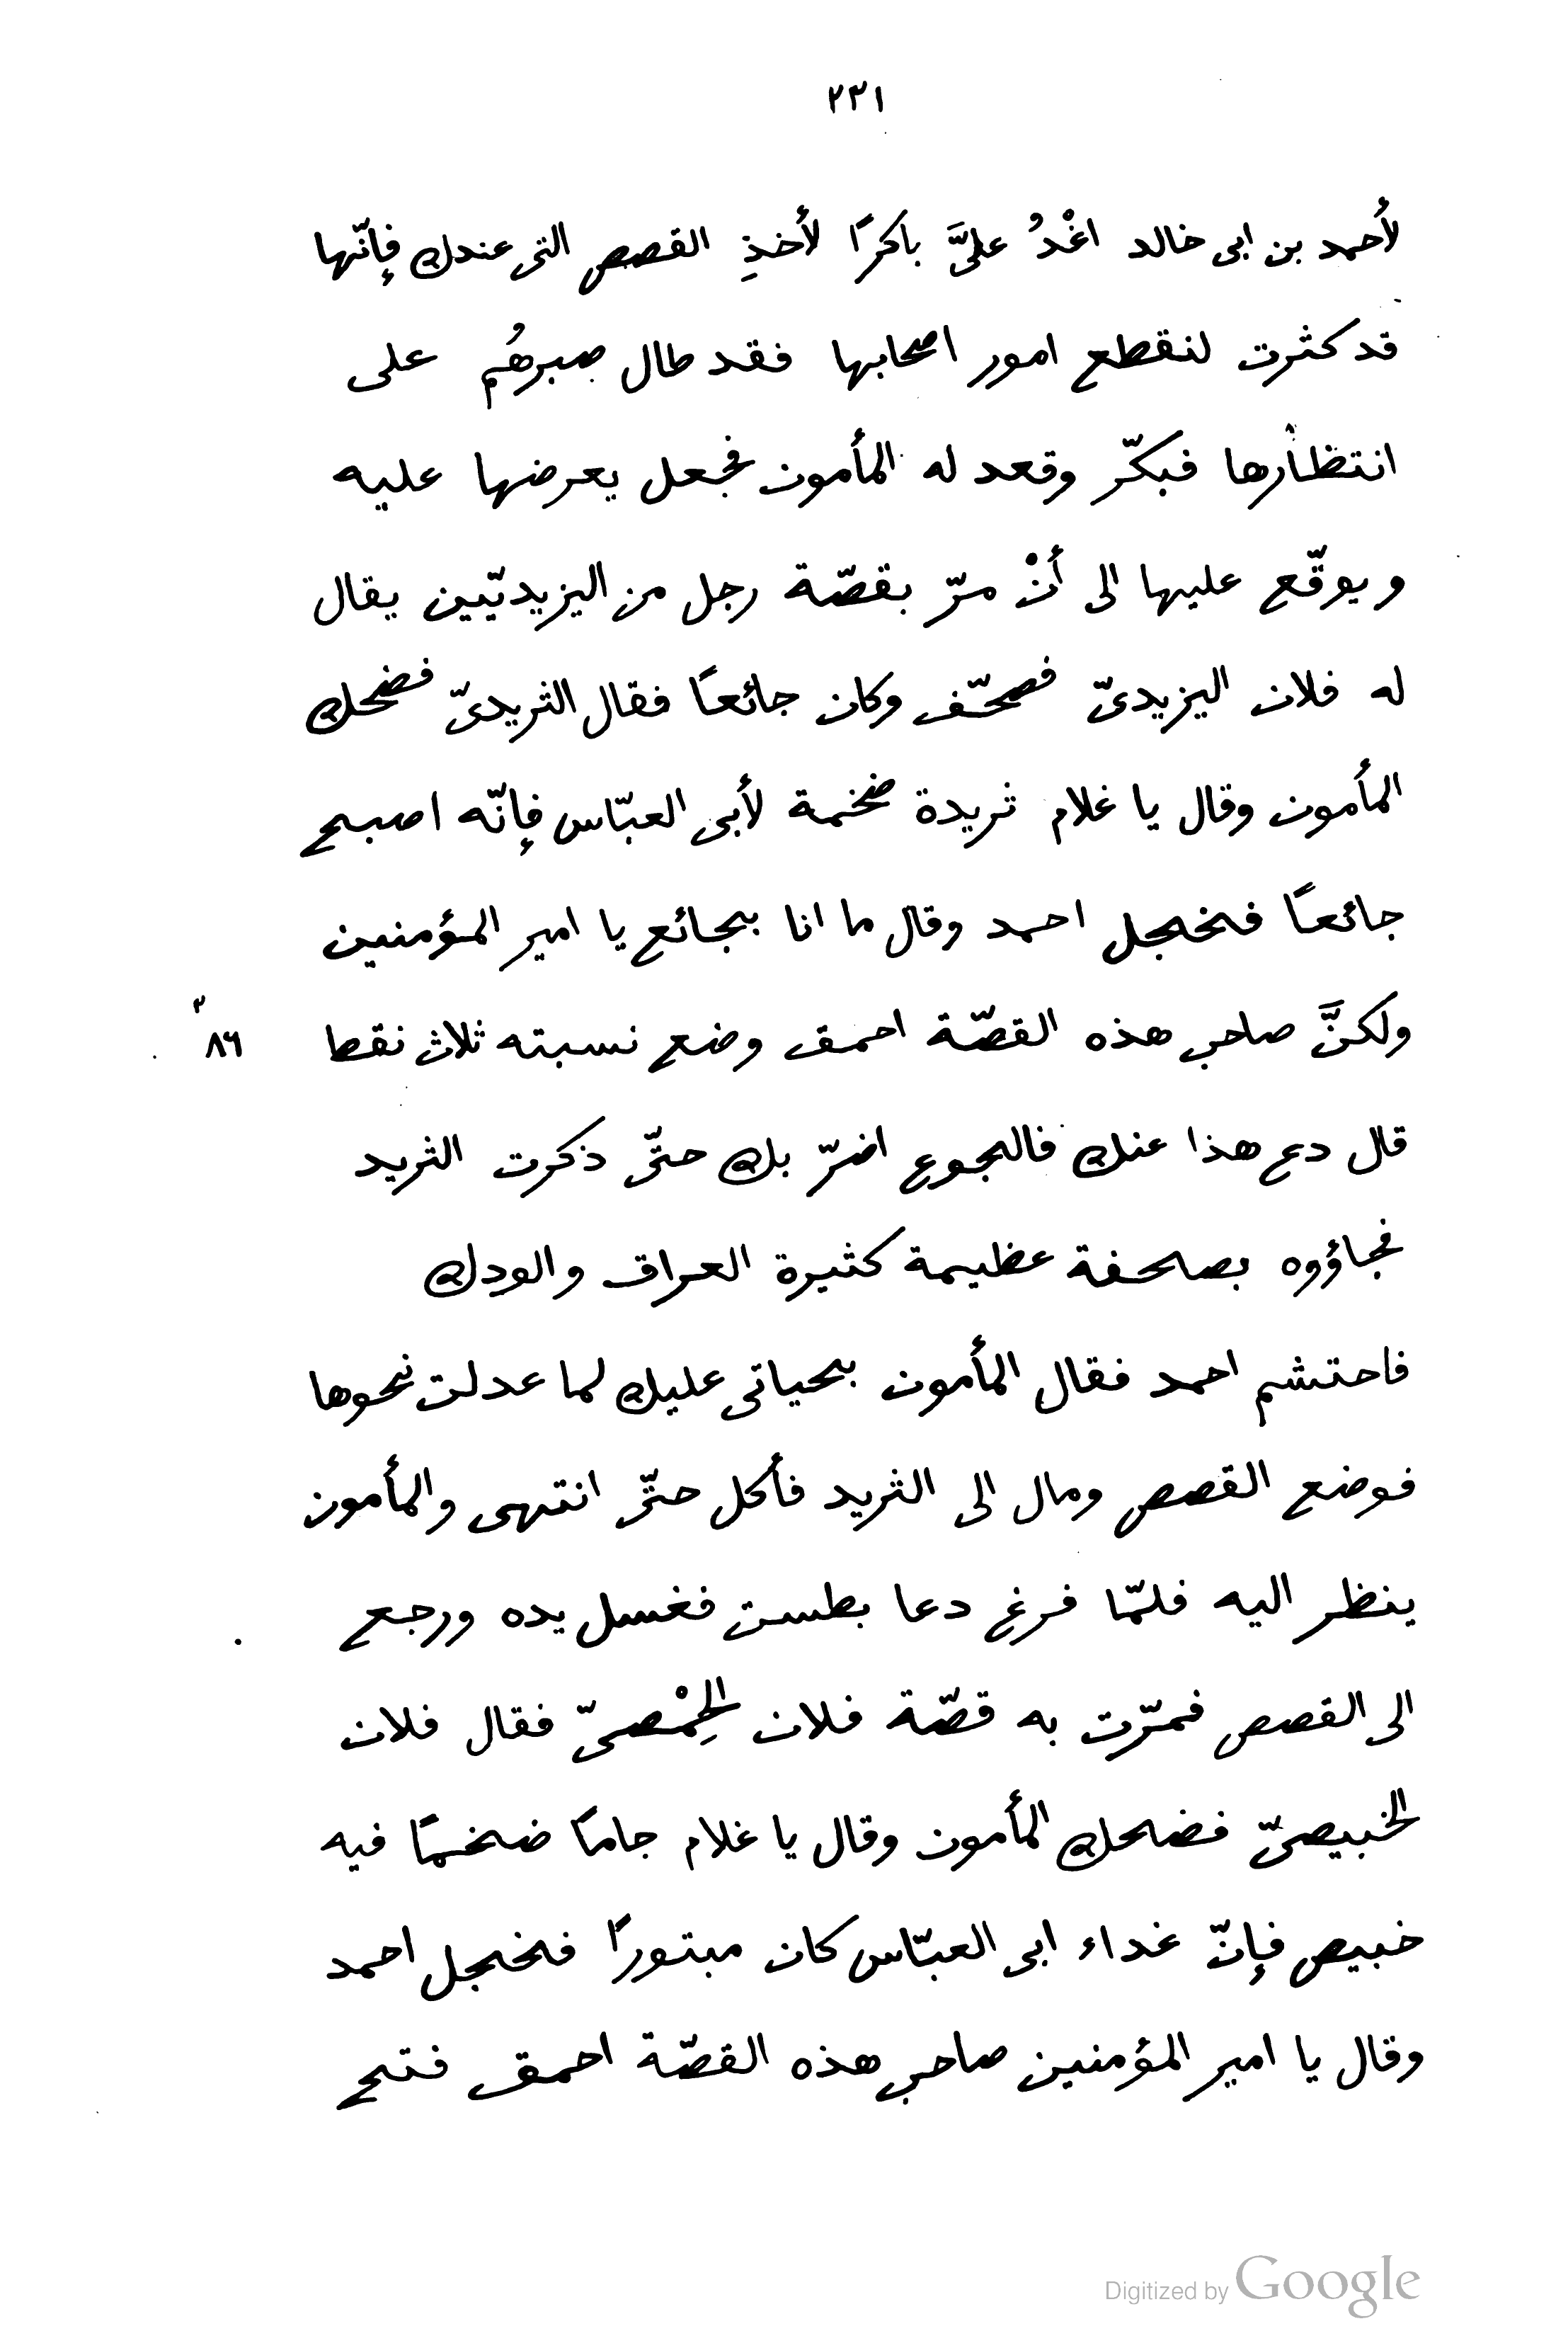 ٢٣١
لأحمد بن ابى خالد اغْدُ علىَّ باكرًا لأخذِ القصص التى عندك فإنّها
قد كثرت لنقطع امور اصحابها فقد طال صبرهُم على
انتظارها فبكّر وقعد له المأمون فجعل يعرضها عليه
ويوقّع عليها الى أنْ مرّ بقصّة رجل من اليزيديّين يقال
له فلان اليزيدىّ فصحّف وكان جائعًا فقال الثريدىّ فضحك
المأمون وقال يا غلام ثريدة ضخمة لأبى العبّاس فإنّه اصبح
جائعًا فخجل احمد وقال ما انا بجائع يا امير المؤمنين
ولكنَّ صاحب هذه القصّة احمق وضع نسبته ثلاث نقط
٨٦٢
قال دع هذا عنك فالجوع اضرّ بك حتّى ذكرت الثريد
فجاؤوه بصحفة عظيمة كثيرة العراق والودك
فاحتشم احمد فقال المأمون بحياتى عليك لما عدلت نحوها
فوضع القصص ومال الى الثريد فأكل حتّى انتهى والمأمون
ينظر اليه فلمّا فرغ دعا بطست فغسل يده ورجع
الى القصص فمرّت به قصّة فلان الحِمْصىّ فقال فلان
الخبيصىّ فضحك المأمون وقال يا غلام جامًا ضخمًا فيه
خبيص فإنّ غداء ابى العبّاس كان مبتورًا فخجل احمد
وقال يا امير المؤمنين صاحب هذه القصّة احمق فتح
Digitized by Google